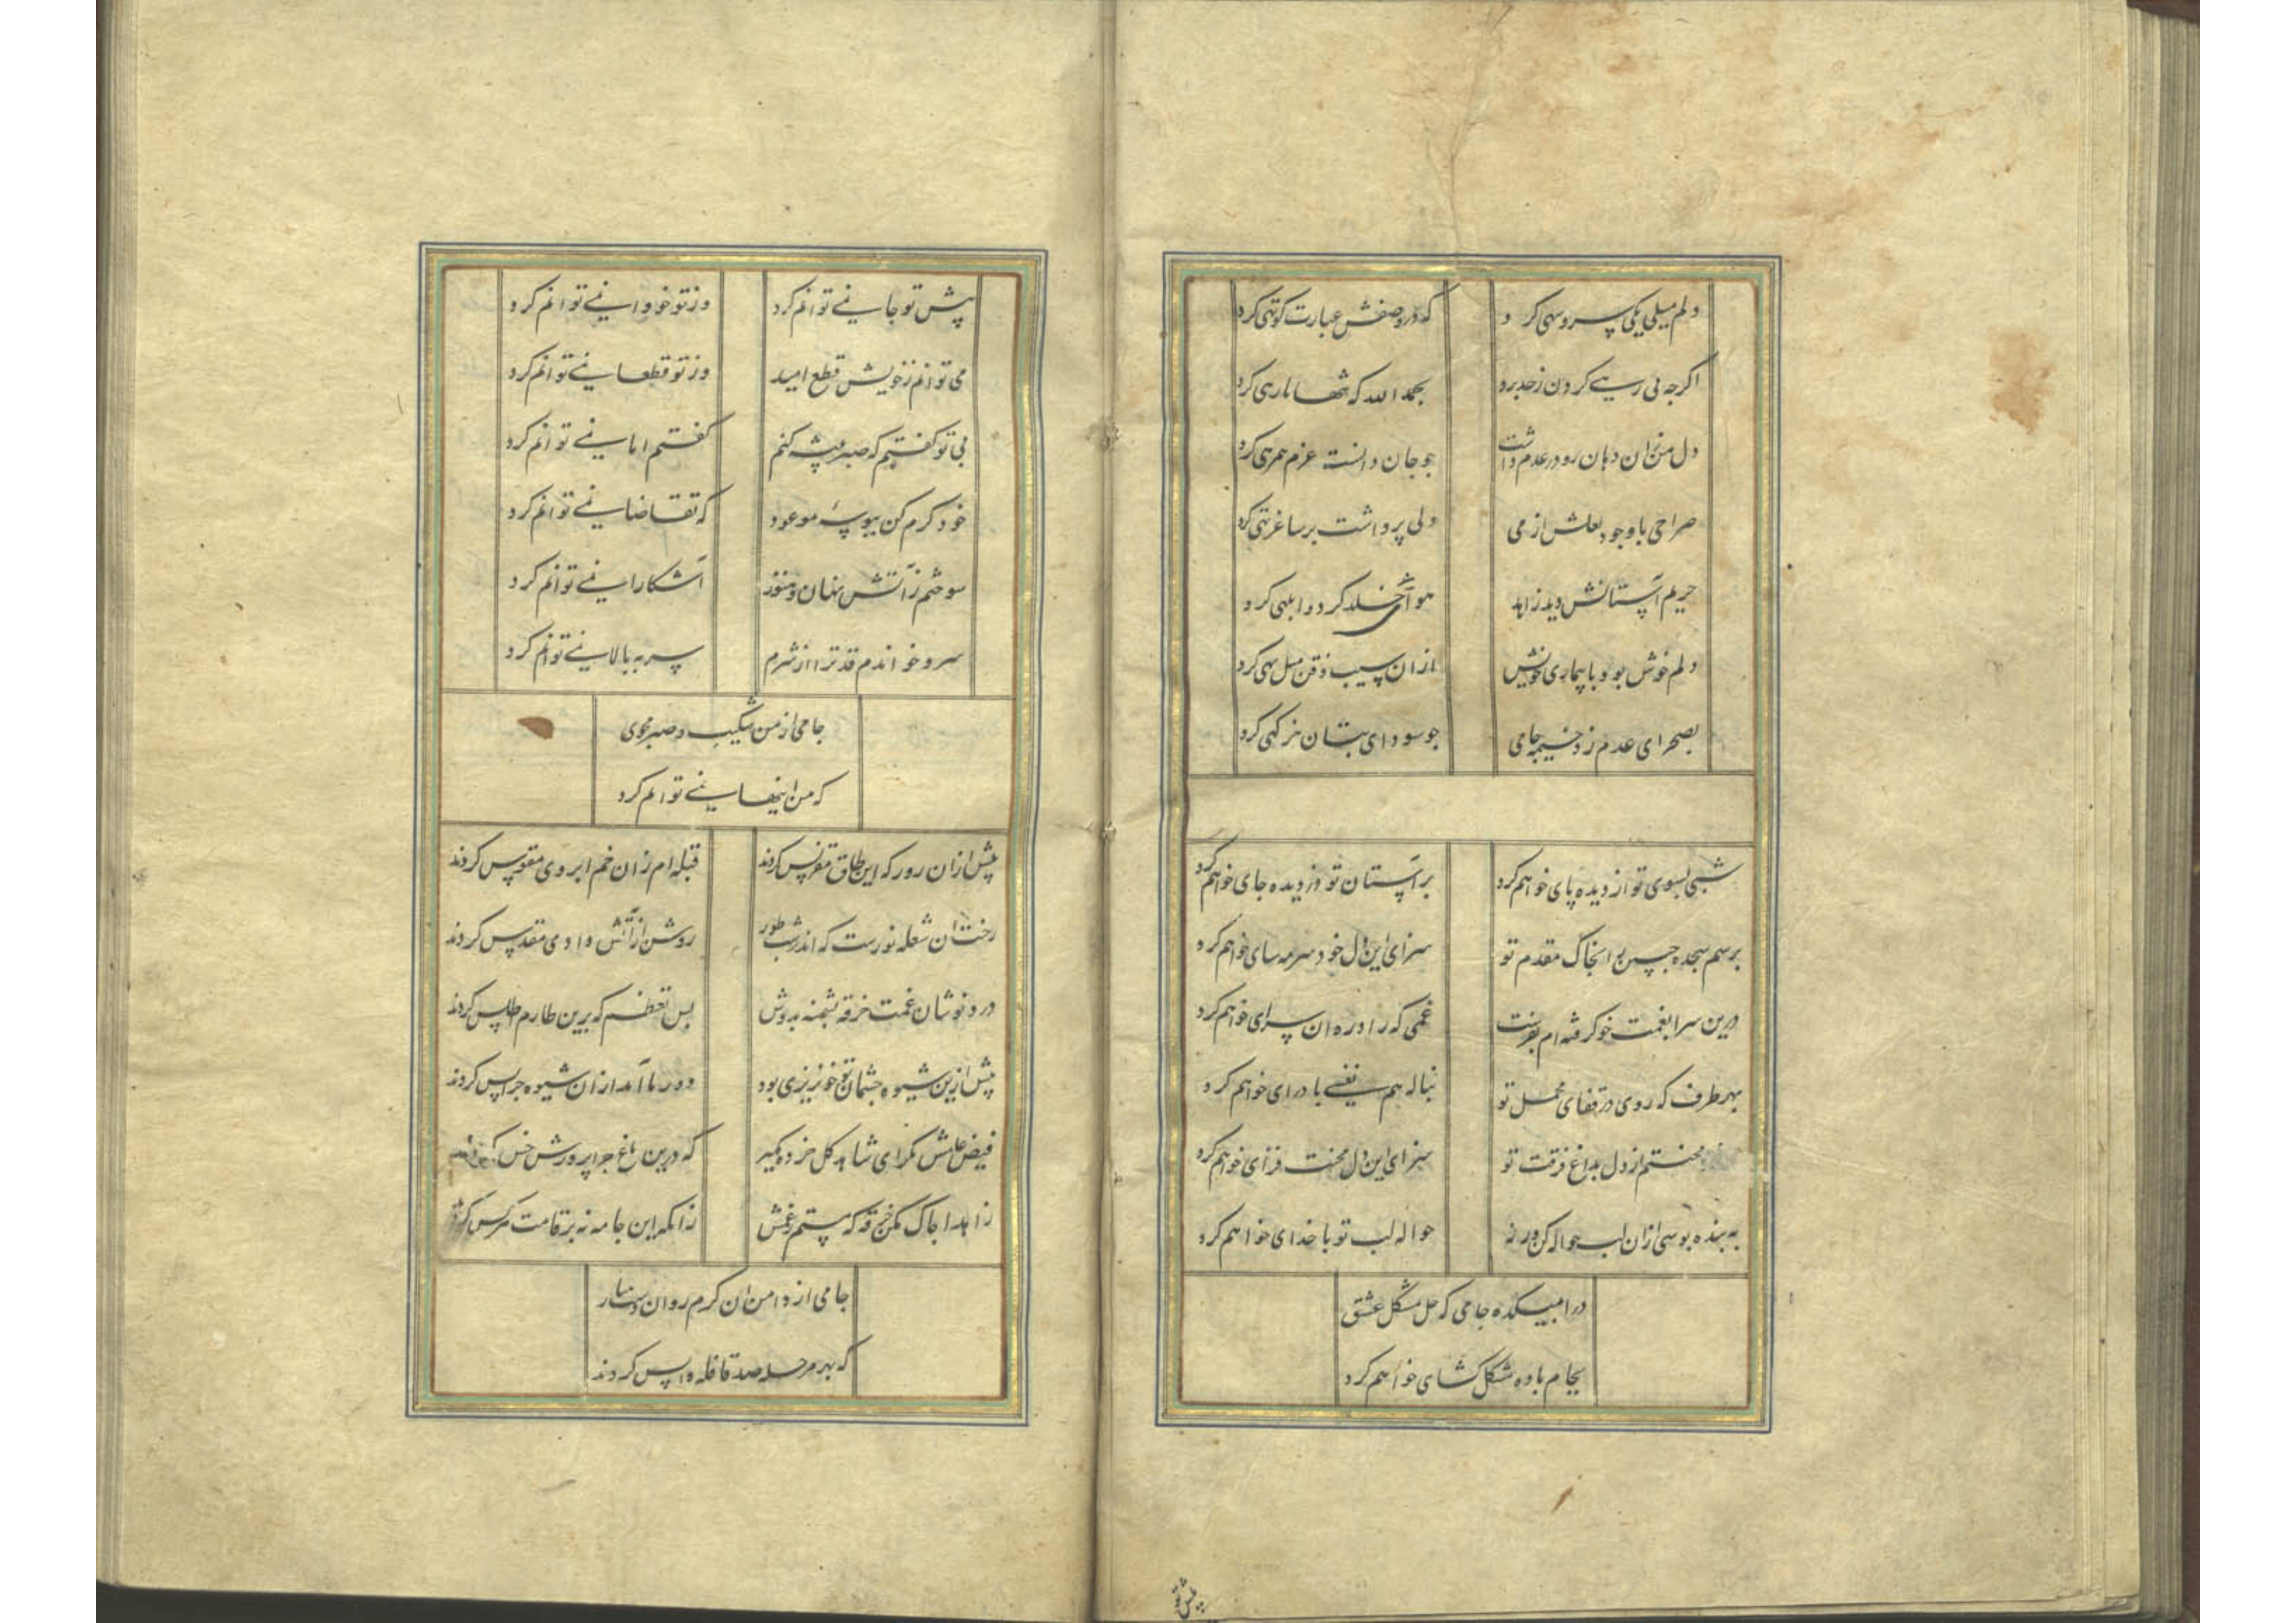 دلم میلی یکی سرو سهی کرد
که در وصفش عبارت کوتهی کرد
اکرچه بی رهی کردن ز حد برد
بحمد الله که شهما را رهی کرد
دل من زان دهان رو در عدم داشت
چو جان دانست عزم همرهی کرد
صراحی با وجود لعلش از می
دلی پر داشت بر ساغر تهی کرد
حریم آستانش دید زاهد
هوای خلد کرد و ابلهی کرد
دلم خوش بود با بیماری خویش
ازان سیب ذقن میل بهی کرد
بصحرای عدم زد خیمه جامی
چو سودای بتان خرکهی کرد
شبی بسوی تو از دیده پای خواهم کرد
بر آستان تو دزدیده جای خواهم کرد
برسم سجده جبین را بخاک مقدم تو
سزای این دل خود سرمه سای خواهم کرد
درین سرا بغمت خو کرفته ام بفرست
غمی که زاد ره ان سرای خواهم کرد
بهر طرف که روی در قفای محمل تو
بناله هم نفسی با درای خواهم کرد
محنتم از دل بداغ فرقت تو
سزای این دل محنت فزای خواهم کرد
به بنده بوسی ازان لب حواله کن ورنه
حواله لب تو با خدای خواهم کرد
درا بمیکده جامی که حل مشکل عشق
بجام باده مشکل کشای خواهم کرد
پیش تو
پیش تو جا نمی توانم کرد
وز تو خود وا نمی توانم کرد
می توانم ز خویش قطع امید
وز تو قطعا نمی توانم کرد
بی تو کفتم که صبر پیشه کنم
کفتم اما نمی توانم کرد
خود کرم کن ببوسهٔ موعود
که تقاضا نمی توانم کرد
سوختم زآتش نهان و هنوز
آشکارا نمی توانم کرد
سرو خواندم قد ترا از شرم
سر ببالا نمی توانم کرد
جامی از من شکیب و صبر مجوی
که من اینها نمی توانم کرد
پیش ازان روز که این طاق مقرنس کردند
قبله ام زان خم ابروی مقوس کردند
رخت ان شعله نورست که اندر شب طور
روشن از آتش وادی مقدس کردند
درد نوشان غمت خرقه پشمینه بدوش
بس تعظم که برین طارم اطلس کردند
پیش ازین شیوه چشمان تو خونریزی بود
دور ما آمد ازان شیوه چرا پس کردند
فیض عامش نکر ای شاهد کل خرده مکیر
که درین باغ چرا پرورش خس کردند
زاهدا چاک مکن خرقه که پستم ز غمش
زانکه این جامه نه بر قامت هر کس کردند
جامی از دامن ان کرم روان دست مدار
که بهر مرحله صد قافله واپس کردند